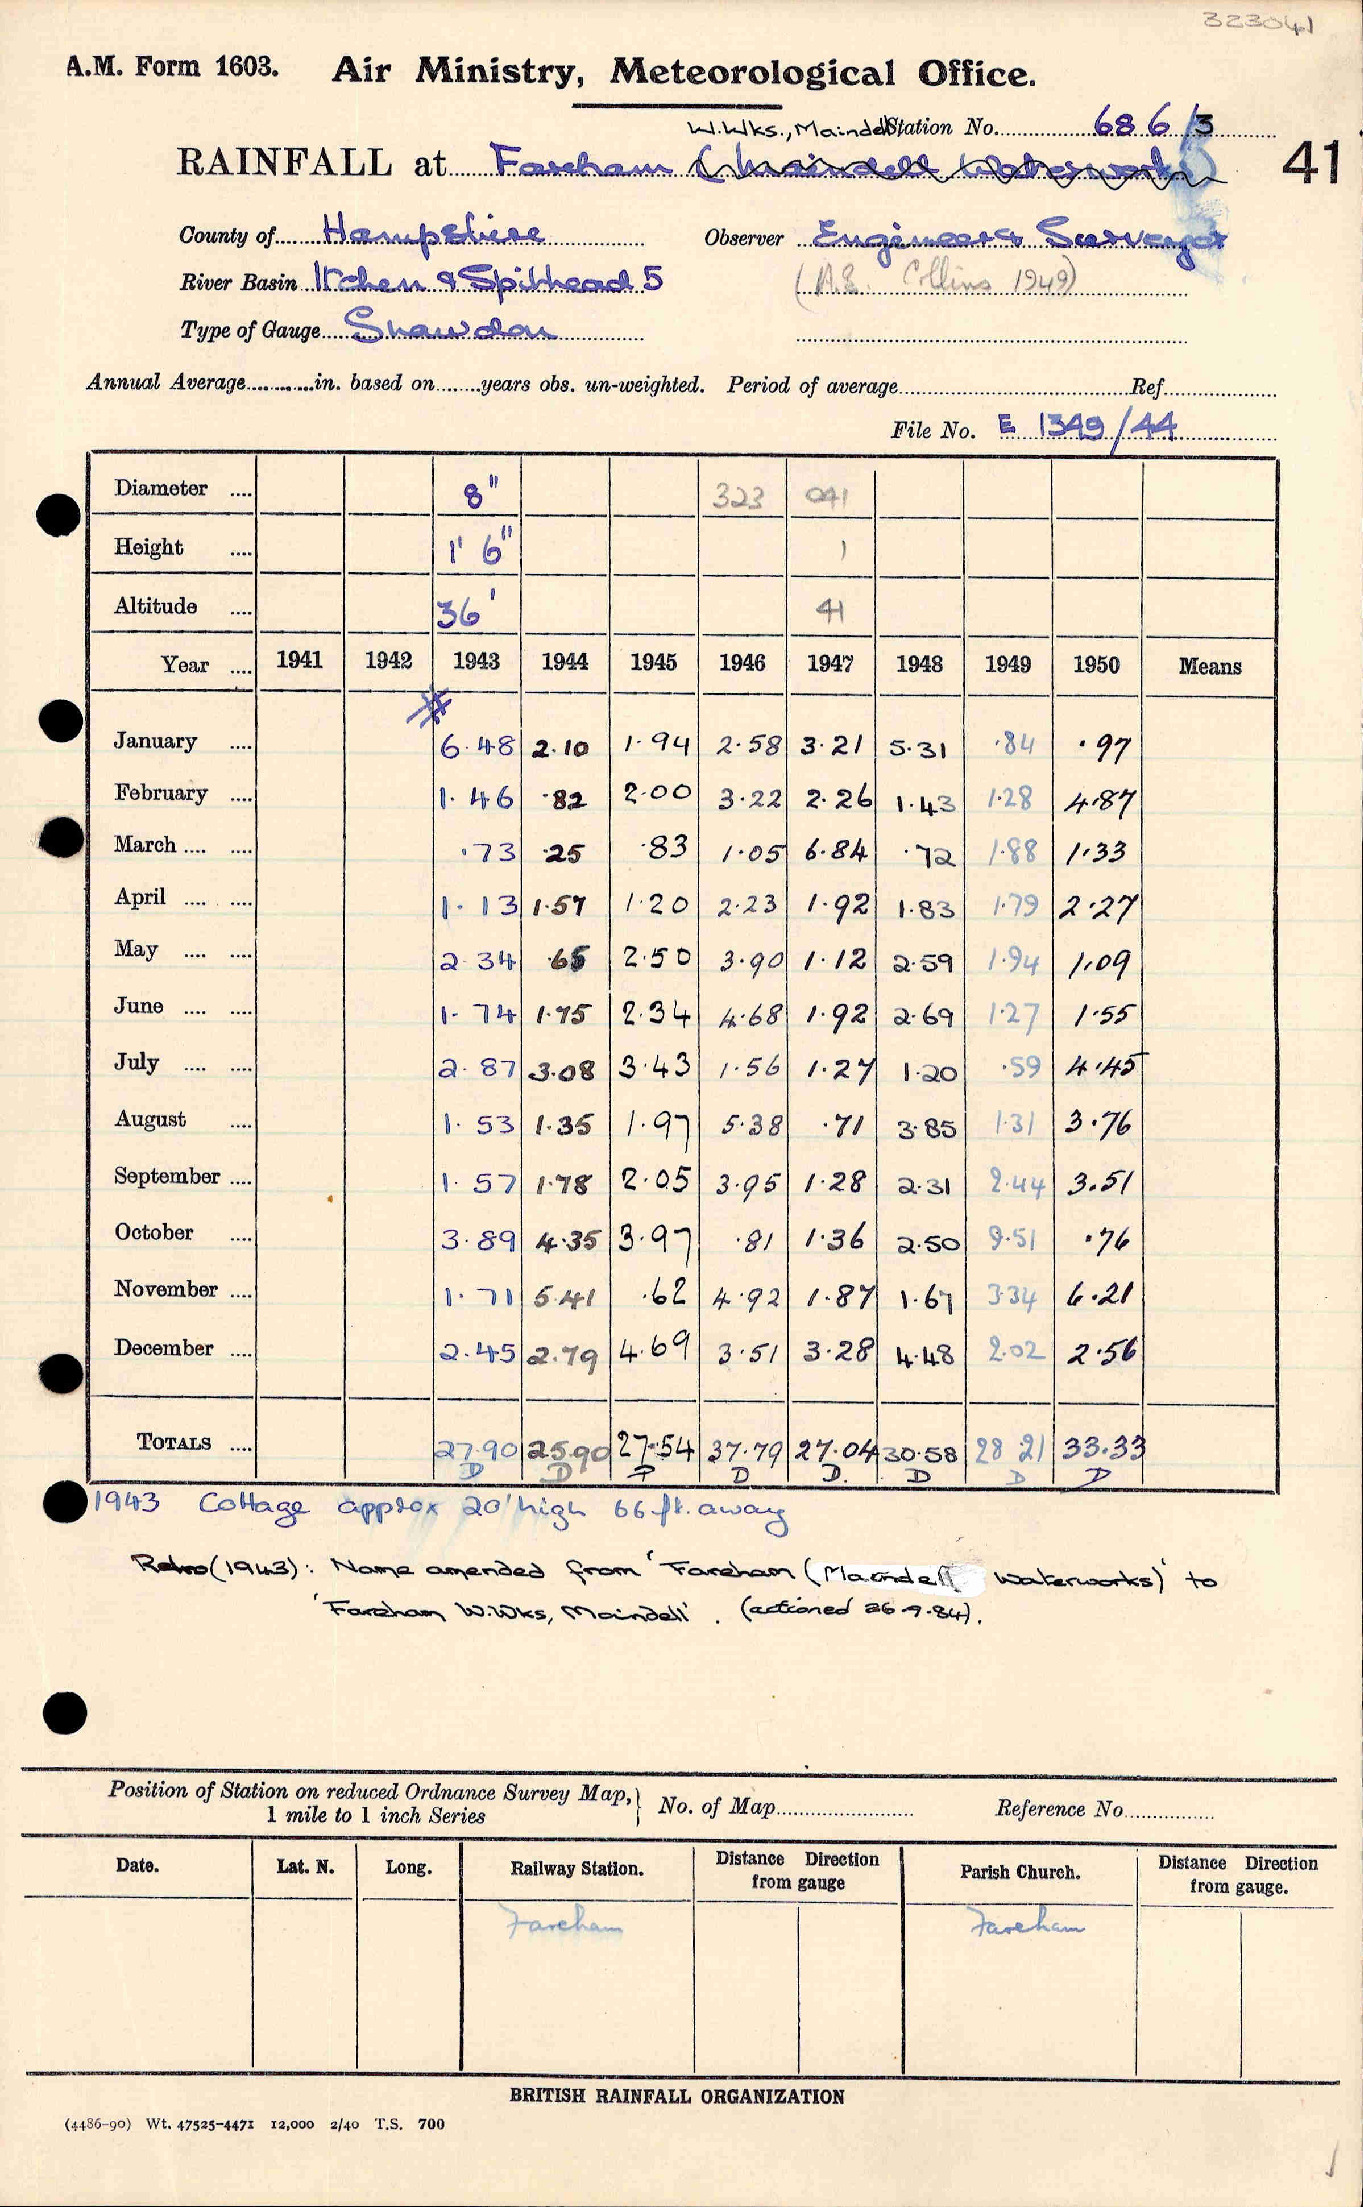 323041
A.M. Form 1603. Air Ministry, Meteorological Office.
W.Wks., Maindell Station No. 686/3
RAINFALL at Fareham (Maindell Waterworks) 41
County of Hampshire Observer Engineer & Surveyor
River Basin Itchen & Spithead 5 (A.E. Collins 1949)
Type of Gauge Snowdon
Annual Average in. based on years obs. un-weighted. Period of average Ref.
File No. E 1349/44
Diameter .... 8" 323 041
Height .... 1' 6" 1
Altitude .... 36' 41
Year .... 1941 1942 1943 1944 1945 1946 1947 1948 1949 1950 Means
January .... 6.48 2.10 1.94 2.58 3.21 5.31 .84 .97
February .... 1.46 .82 2.00 3.22 2.26 1.43 1.28 4.87
March .... .... .73 .25 .83 1.05 6.84 .72 1.88 1.33
April .... .... 1.13 1.57 1.20 2.23 1.92 1.83 1.79 2.27
May .... .... 2.34 .65 2.50 3.90 1.12 2.59 1.94 1.09
June .... .... 1.74 1.75 2.34 4.68 1.92 2.69 1.27 1.55
July .... .... 2.87 3.08 3.43 1.56 1.27 1.20 .59 4.45
August .... 1.53 1.35 1.97 5.38 .71 3.85 1.31 3.76
September .... 1.57 1.78 2.05 3.95 1.28 2.31 2.44 3.51
October .... 3.89 4.35 3.97 .81 1.36 2.50 9.51 .76
November .... 1.71 5.41 .62 4.92 1.87 1.67 3.34 6.21
December .... 2.45 2.79 4.69 3.51 3.28 4.48 2.02 2.56
TOTALS .... 27.90 25.90 27.54 37.79 27.04 30.58 28.21 33.33
D D D D D. D D D
1943 Cottage approx 20' high 66 ft. away
Retro (1943): Name amended from 'Fareham (Maindell Waterworks)' to
'Fareham W.Wks, Maindell'. (actioned 26.9.84).
Position of Station on reduced Ordnance Survey Map,} No. of Map Reference No.
1 mile to 1 inch Series
Date. Lat. N. Long. Railway Station. Distance Direction from gauge Parish Church. Distance Direction from gauge.
Fareham Fareham
BRITISH RAINFALL ORGANIZATION
(4486-90) Wt. 47525-4471 12,000 2/40 T.S. 700